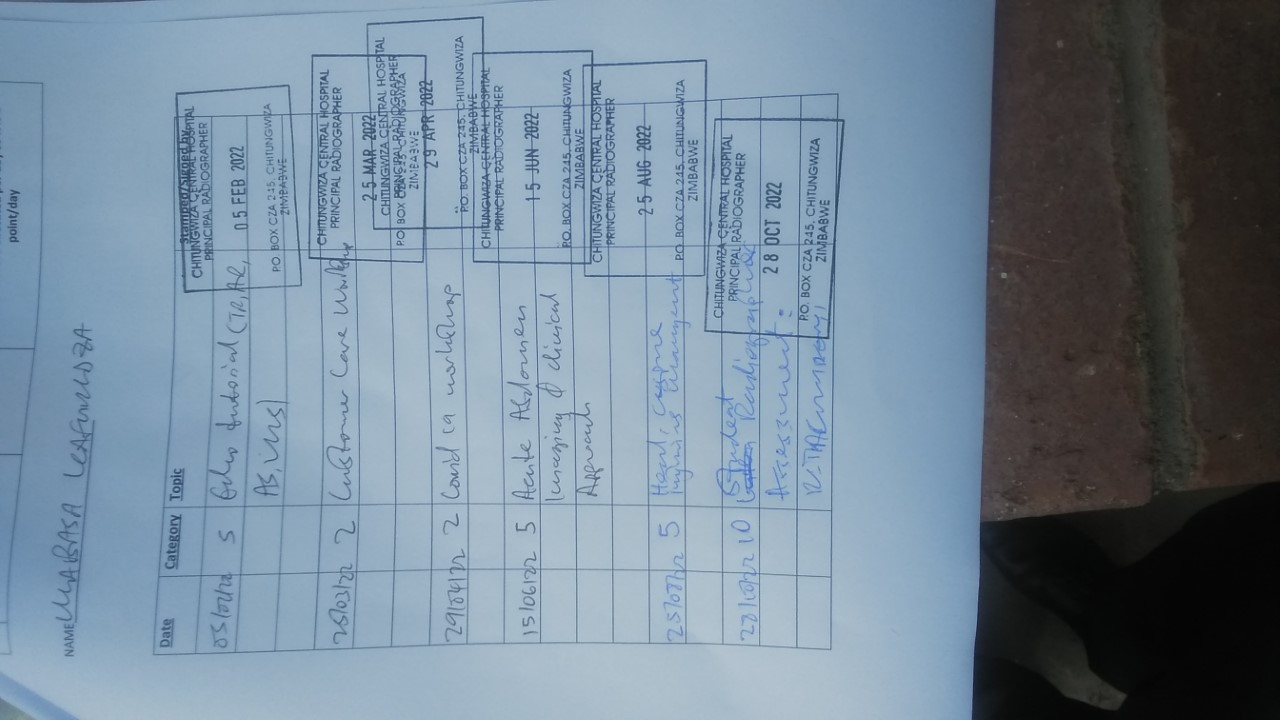 point/day
NAME
Date Category Topic Stamped/Signed by
05/02/22 5 Echo tutorial (TR, AR,
AS,
CHITUNGWIZA CENTRAL HOSPITAL
PRINCIPAL RADIOGRAPHER
05 FEB 2022
P.O. BOX CZA 245, CHITUNGWIZA
ZIMBABWE
25/03/22 2 Customer Care
CHITUNGWIZA CENTRAL HOSPITAL
PRINCIPAL RADIOGRAPHER
25 MAR 2022
P.O. BOX CZA 245, CHITUNGWIZA
ZIMBABWE
29/04/22 2 Covid 19 workshop
CHITUNGWIZA CENTRAL HOSPITAL
PRINCIPAL RADIOGRAPHER
29 APR 2022
P.O. BOX CZA 245, CHITUNGWIZA
ZIMBABWE
15/06/22 5 Acute Abdomen
Imaging & clinical
Approach
CHITUNGWIZA CENTRAL HOSPITAL
PRINCIPAL RADIOGRAPHER
15 JUN 2022
P.O. BOX CZA 245, CHITUNGWIZA
ZIMBABWE
25/08/22 5 Head,
CHITUNGWIZA CENTRAL HOSPITAL
PRINCIPAL RADIOGRAPHER
25 AUG 2022
P.O. BOX CZA 245, CHITUNGWIZA
ZIMBABWE
28/10/22 10 Student
Radiographer
Assessment:
CHITUNGWIZA CENTRAL HOSPITAL
PRINCIPAL RADIOGRAPHER
28 OCT 2022
P.O. BOX CZA 245, CHITUNGWIZA
ZIMBABWE